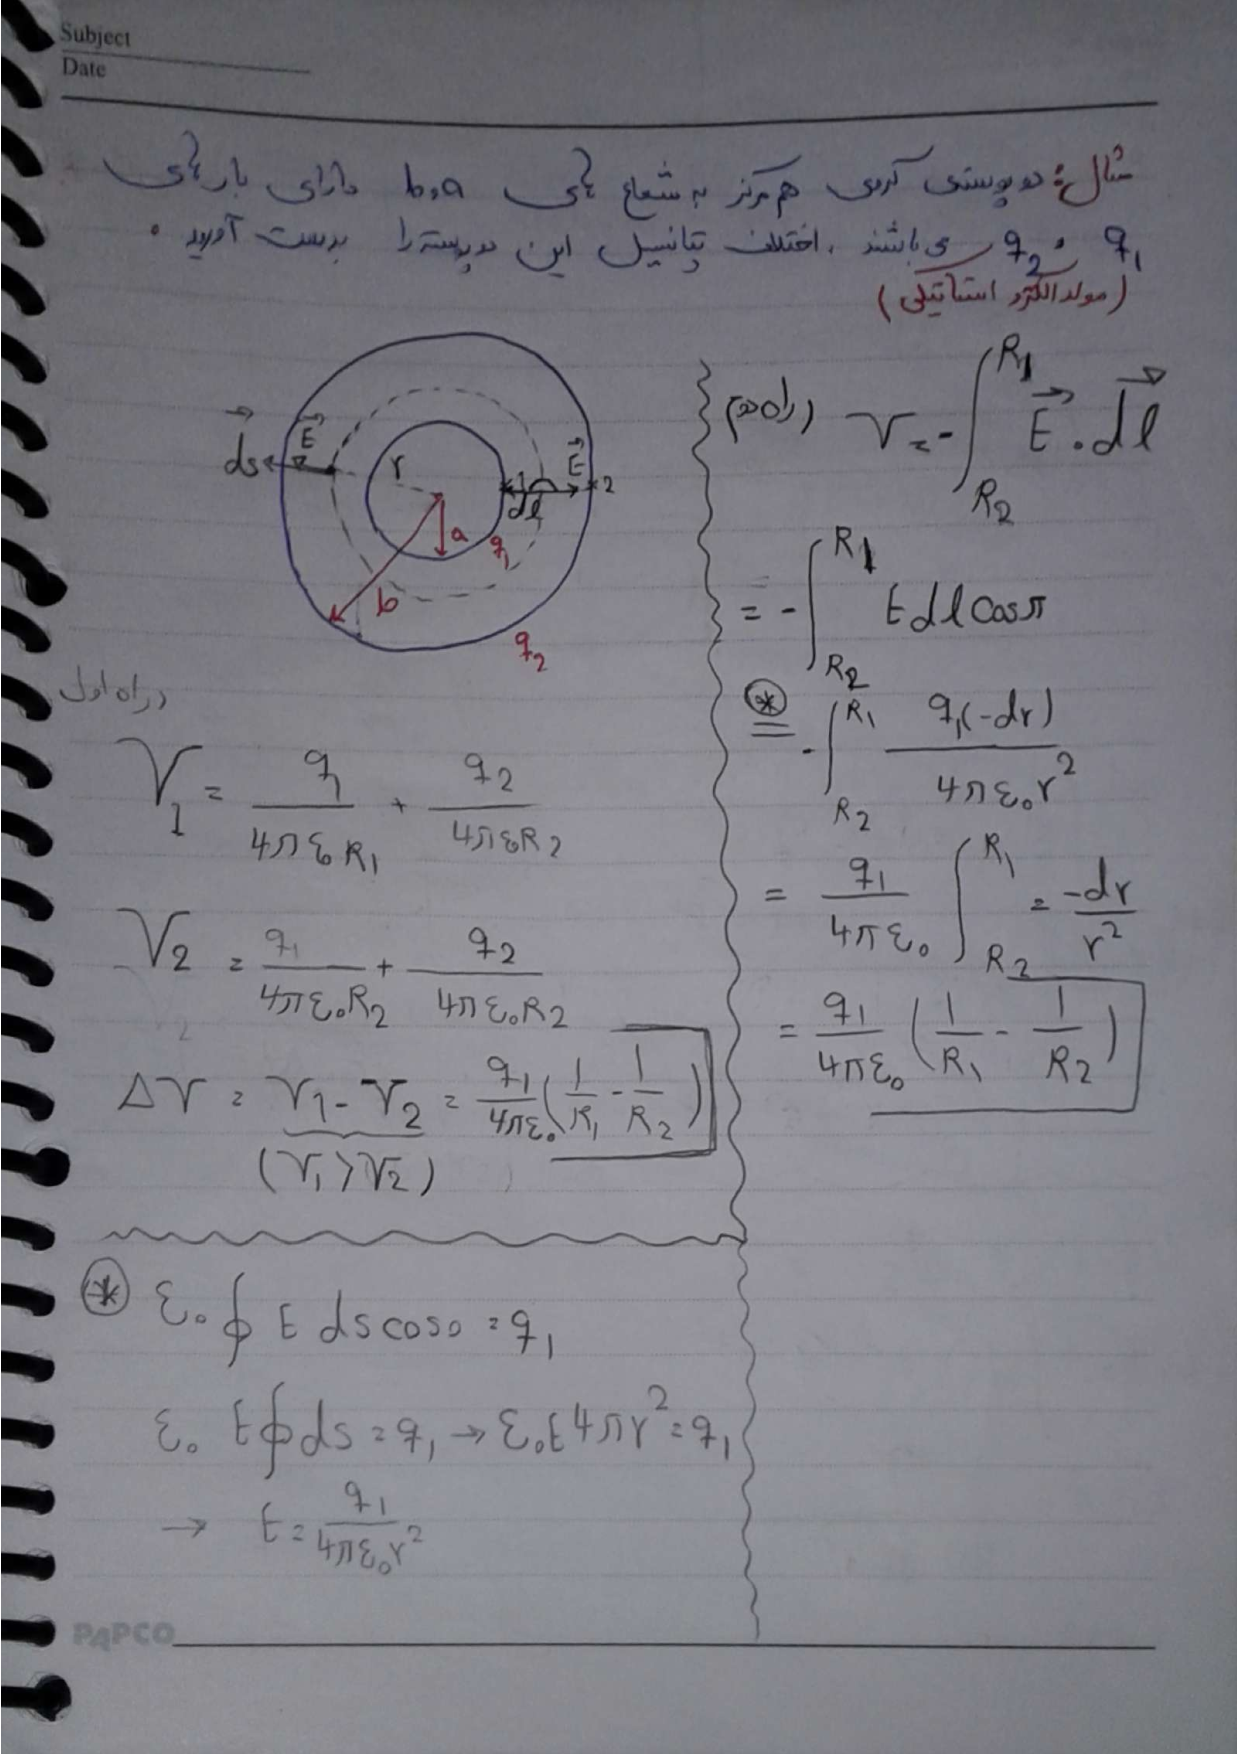 Subject
Date
مثال: دو پوستهی کروی هم مرکز به شعاع های a و b دارای بار های
q₁ و q₂ می باشند. اختلاف پتانسیل این دو پوسته را بدست آورید.
(مولد الکترو استاتیکی)
ds⃗ E⃗ r a b q₁ q₂ 1 E⃗ dl⃗ 2
راه اول
V₁ = q₁/4πε₀R₁ + q₂/4πε₀R₂
V₂ = q₁/4πε₀R₂ + q₂/4πε₀R₂
ΔV = V₁ - V₂ = q₁/4πε₀ (1/R₁ - 1/R₂)
(V₁ > V₂)
راه دوم) V = -∫_{R₂}^{R₁} E⃗ . dl⃗
= -∫_{R₂}^{R₁} E dl Cosπ
⊛ = -∫_{R₂}^{R₁} q₁(-dr)/4πε₀r²
= q₁/4πε₀ ∫_{R₂}^{R₁} = -dr/r²
= q₁/4πε₀ (1/R₁ - 1/R₂)
⊛ ε₀ ∮ E ds cos0 = q₁
ε₀ E∮ds = q₁ → ε₀E4πr² = q₁
→ E = q₁/4πε₀r²
PAPCO